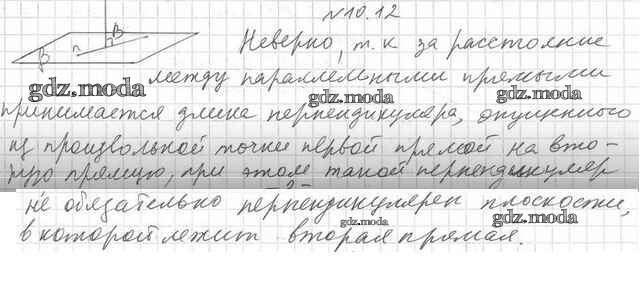 №10.12
B
n
β
Неверно, т.к за расстояние
между параллельными прямыми
gdz.moda
gdz.moda
gdz.moda
принимается длина перпендикуляра, опущенного
из произвольной точки первой прямой на вто-
рую прямую, при этом такой перпендикуляр
не обязательно перпендикулярен плоскости,
gdz.moda
gdz.moda
в которой лежит вторая прямая.